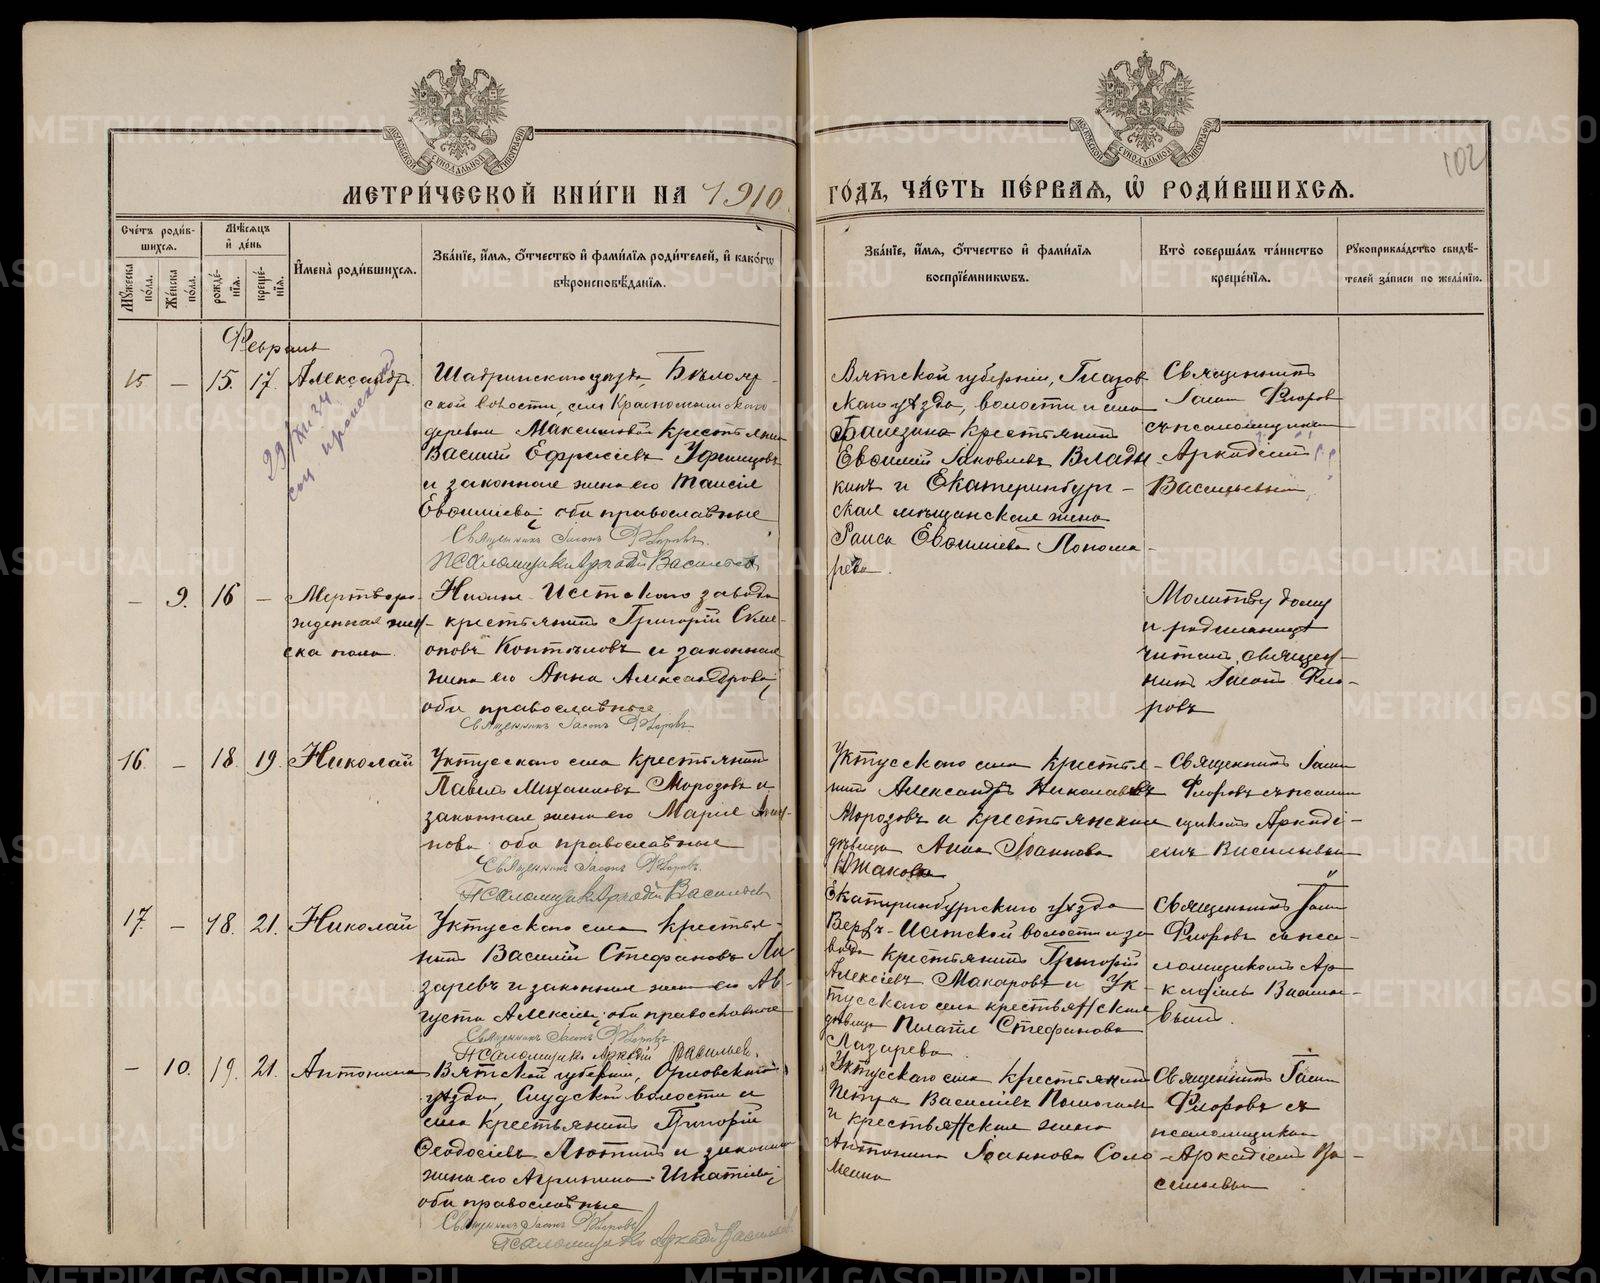 МЕТРИ́ЧЕСКОЙ КНИ́ГИ НА 1910
ГО́ДЪ, ЧА́СТЬ ПЕ́РВАЯ, Ѡ҆ РОДИ́ВШИХСЯ.
102
Сче́тъ роди́в-
шихся.
Мѣ́сяцъ
и҆ де́нь
Му́жеска
по́ла.
Же́нска
по́ла.
рожде́-
нїя.
креще́-
нїя.
И҆мена̀ роди́вшихся.
Зва́нїе, и҆́мя, ѻ҆́тчество и҆ фами́лїя роди́телей, и҆ како́гѡ
вѣроисповѣ́данїя.
Зва́нїе, и҆́мя, ѻ҆́тчество и҆ фами́лїя
воспрїе́мникѡвъ.
Кто̀ соверша́лъ та́инство
креще́нїя.
Рꙋкоприкла́дство свидѣ́-
телей за́писи по жела́нїю.
Февраль
15 — 15. 17. Александръ.
Шадринского уѣзда, Бѣлояр-
ской волости, села Красномыльского
деревни Максимовой крестьянинъ
Василій Ефремовъ
и законная жена его Таисія
Евѳиміева; оба православные
Священникъ Іасонъ Флоровъ.
Псаломщикъ Аркадій Васильевъ
Вятской губерніи, Глазов
скаго уѣзда, волости и села
Балезина крестьянинъ
Евѳимій Іаковлевъ Влады-
кинъ и Екатеринбург-
ская мѣщанская жена
Раиса Евѳиміева Понома-
рева.
Священникъ
Іасонъ Флоровъ
съ псаломщикомъ
Аркадіемъ
Васильевымъ
— 9. 16 —
Мертворо-
жденная жен-
ска пола.
Нижне-Исетскаго завода
крестьянинъ Григорій Сѵме-
оновъ и законная
жена его Анна Александрова;
оба православные
Священникъ Іасонъ Флоровъ.
Молитву дому
и родильницѣ
читалъ священ-
никъ Іасонъ Фло-
ровъ
16. — 18. 19. Николай
Уктусскаго села крестьянинъ
Павелъ Михаиловъ Морозовъ и
законная жена его Марія
нова; оба православные
Священникъ Іасонъ Флоровъ.
Псаломщикъ Аркадій Васильевъ
Уктусскаго села крестья-
нинъ Александръ Николаевъ
Морозовъ и крестьянская
дѣвица Анна Іоаннова
Южакова
Священникъ Іасонъ
Флоровъ съ псалом
щикомъ Аркаді-
емъ Васильевымъ
17. — 18. 21. Николай
Уктусскаго села крестья-
нинъ Василій Стефановъ Ла
заревъ и законная жена его Ав-
густа Алексіева; оба православные
Священникъ Іасонъ Флоровъ
Псаломщикъ Аркадій Васильевъ.
Екатеринбургскаго уѣзда
Верхъ-Исетской волости и за
вода крестьянинъ Григорій
Алексіевъ Макаровъ и Ук-
тусскаго села крестьянская
дѣвица Стефанова
Лазарева.
Священникъ Іасонъ
Флоровъ съ пса-
ломщикомъ Ар-
кадіемъ Василье-
вымъ.
— 10. 19. 21. Антонина
Вятской губерніи, Орловскаго
уѣзда, Слудской волости и
села крестьянинъ Григорій
Ѳеодосіевъ и законная
жена его Агриппина Игнатіева;
оба православные
Священникъ Іасонъ Флоровъ
Псаломщикъ Аркадій Васильевъ
Уктусскаго села крестьянинъ
Петръ Василіевъ
и крестьянская жена
Антонина Іоаннова Соло-
меина
Священникъ Іасонъ
Флоровъ съ
псаломщикомъ
Аркадіемъ Ва-
сильевымъ
METRIKI.GASO-URAL.RU